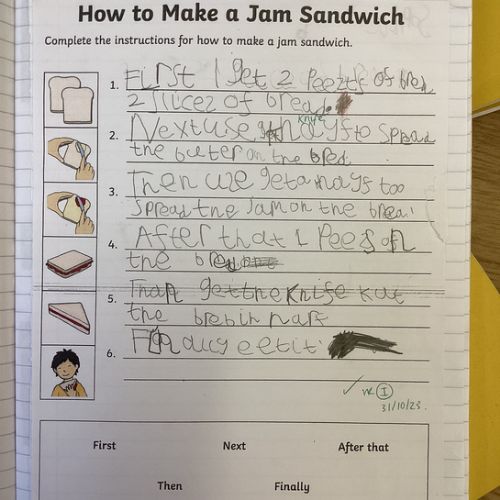 How to Make a Jam Sandwich
Complete the instructions for how to make a jam sandwich.
1. First I get 2 Peezis of bred
2 slicez of bread.
2. Next use a nayf to spread
knife
the buter on the bred
3. Then we get a nayf too
Spread the Jam on the bread
4. After that I Pees on
the bred
5. Than get the Knife kut
the bred in harf
6. Finduly eetit.
✓ I
31/10/23.
First Next After that
Then Finally